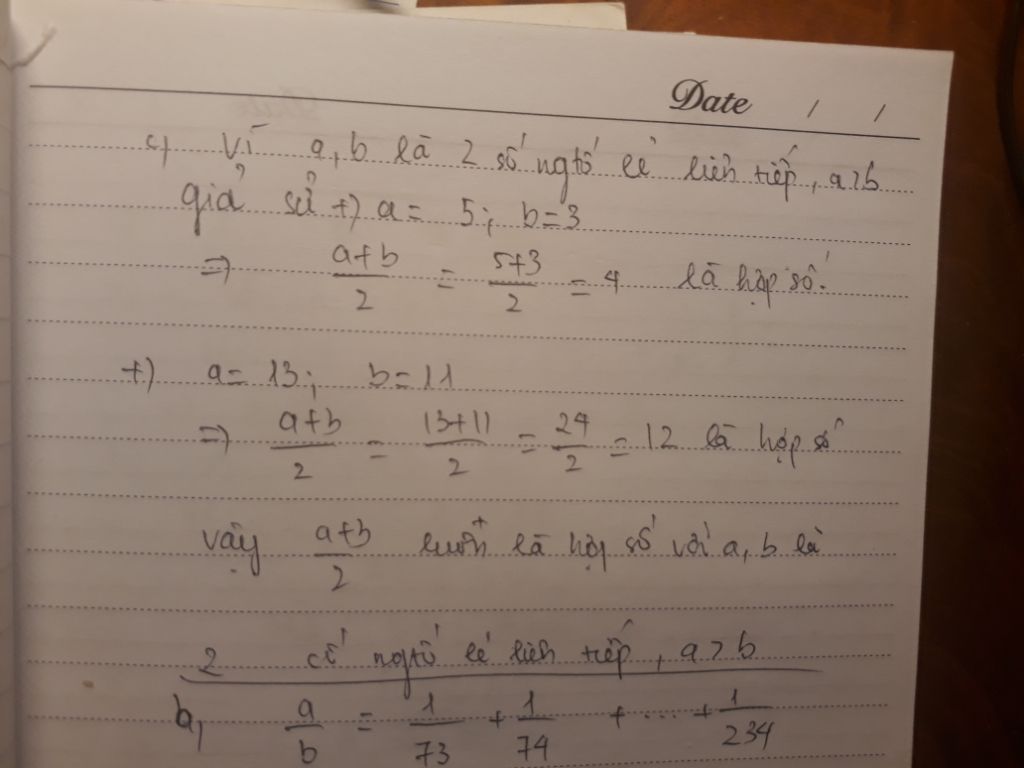 Date / /
c) Vì a, b là 2 số ngtố lẻ liên tiếp, a > b
giả sử +) a = 5; b = 3
=> a+b/2 = 5+3/2 = 4 là hợp số.
+) a = 13; b = 11
=> a+b/2 = 13+11/2 = 24/2 = 12 là hợp số
vậy a+b/2 luôn là hợp số với a, b là
2 số ngtố lẻ liên tiếp, a > b
b, a/b = 1/73 + 1/74 + ... + 1/234